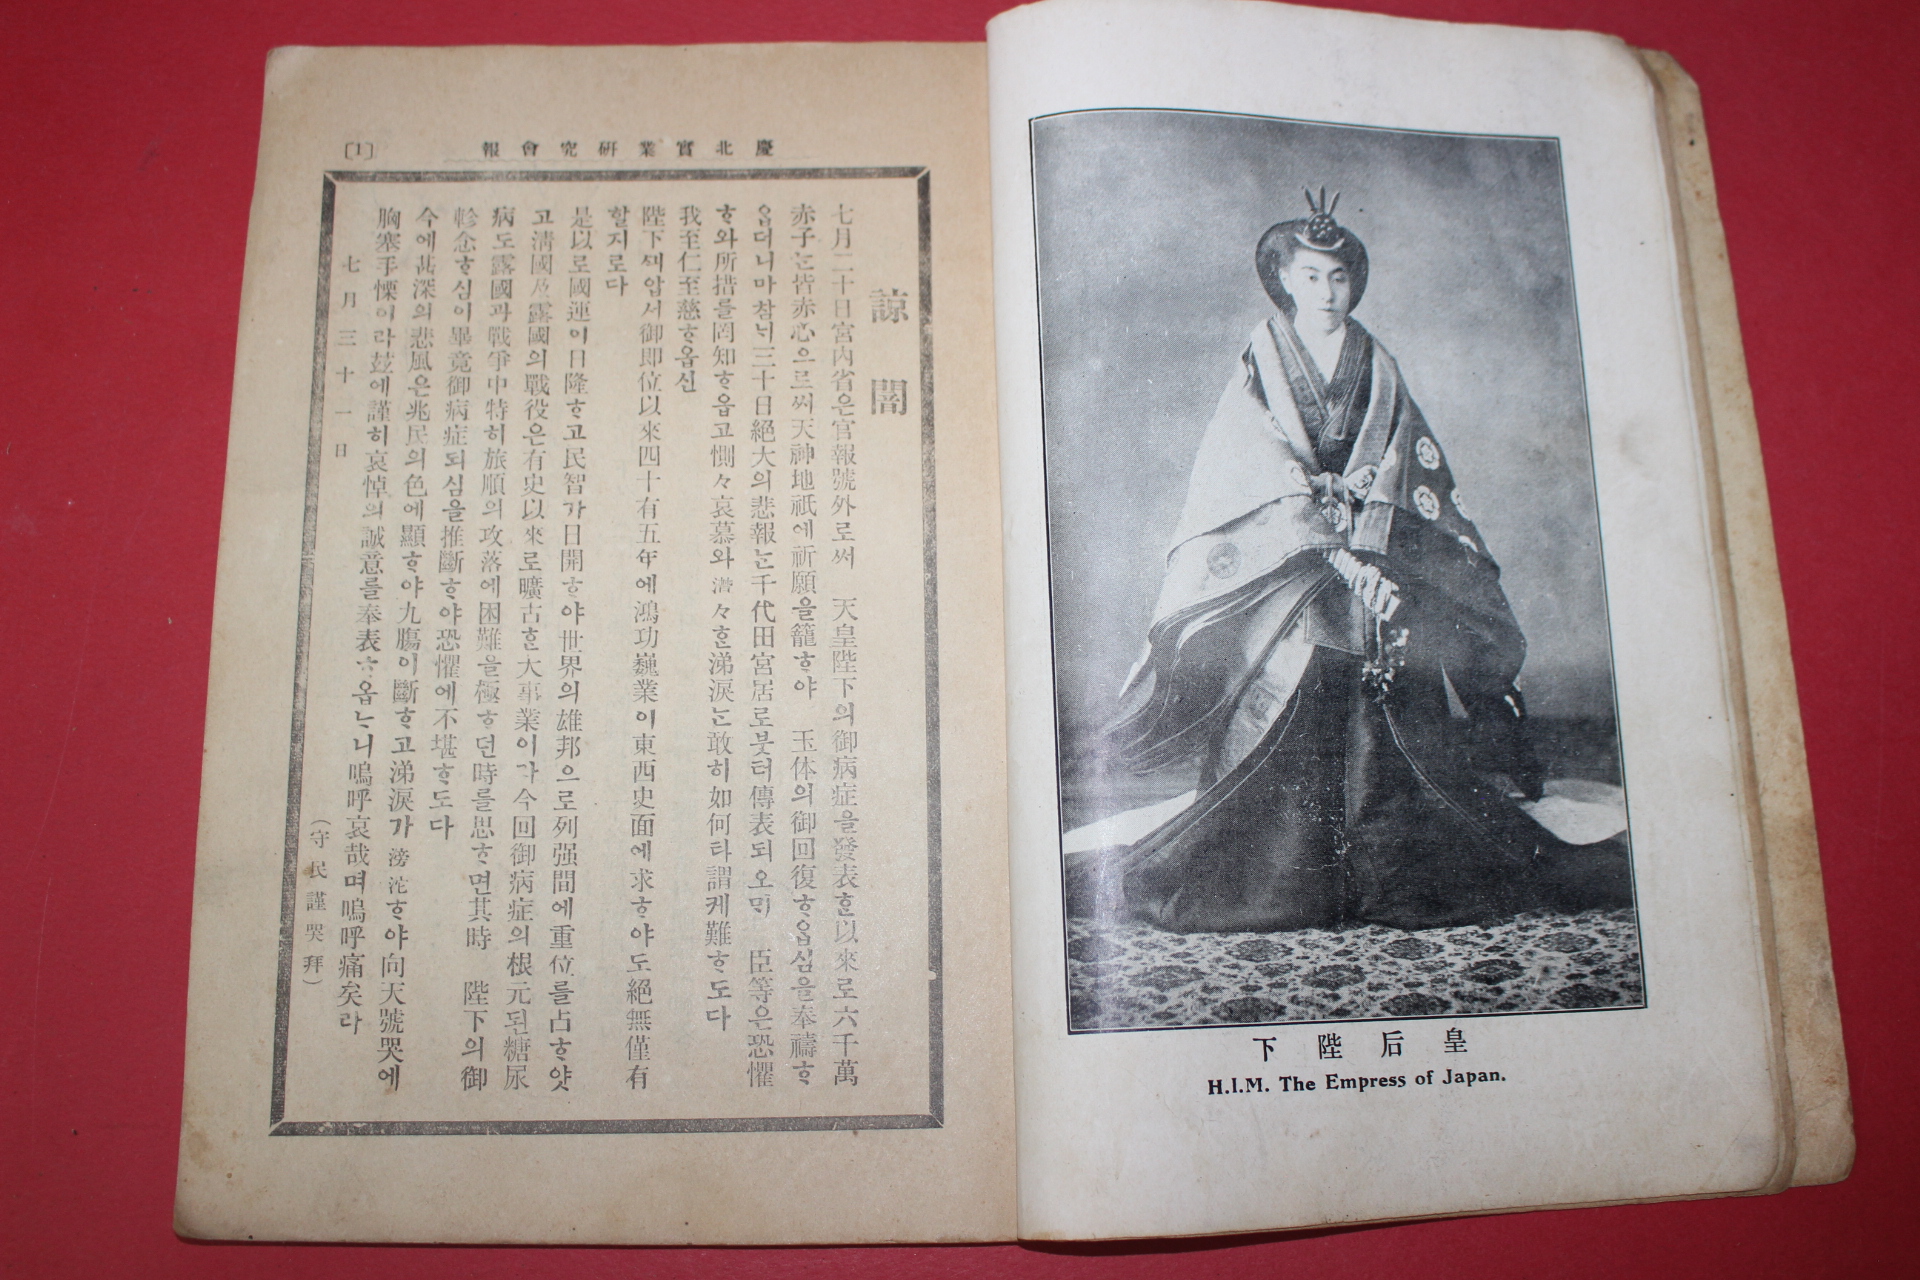 皇后陛下
H.I.M. The Empress of Japan.
慶北實業研究會報
[1]
諒闇
七月二十日宮內省은官報號外로써 天皇陛下의御病症을發表ᄒᆞᆫ以來로六千萬
赤子ᄂᆞᆫ皆赤心으로써天神地祇에祈願을籠ᄒᆞ야 玉体의御回復ᄒᆞ읍심을奉禱ᄒᆞ
읍더니마참ᄂᆡ三十日絕大의悲報ᄂᆞᆫ千代田宮居로븟터傳表되오ᄆᆡ 臣等은恐懼
ᄒᆞ와所措를罔知ᄒᆞ읍고惻々哀慕와潸々ᄒᆞᆫ涕淚ᄂᆞᆫ敢히如何타謂케難ᄒᆞ도다
我至仁至慈ᄒᆞ옵신
陛下ᄭᅴ압셔御即位以來四十有五年에鴻功巍業이東西史面에求ᄒᆞ야도絕無僅有
할지로다
是以로國運이日隆ᄒᆞ고民智가日開ᄒᆞ야世界의雄邦으로列强間에重位를占ᄒᆞ얏
고淸國及露國의戰役은有史以來로曠古ᄒᆞᆫ大事業이라今回御病症의根元된糖尿
病도露國과戰爭中特히旅順의攻落에困難을極ᄒᆞ던時를思ᄒᆞ면其時 陛下의御
軫念ᄒᆞ심이畢竟御病症되심을推斷ᄒᆞ야恐懼에不堪ᄒᆞ도다
今에甚深의悲風은兆民의色에顯ᄒᆞ야九膓이斷ᄒᆞ고涕淚가滂沱ᄒᆞ야向天號哭에
胸塞手慄이라玆에謹히哀悼의誠意를奉表ᄒᆞ옵ᄂᆞ니嗚呼哀哉며嗚呼痛矣라
七月三十一日
(守民謹哭拜)